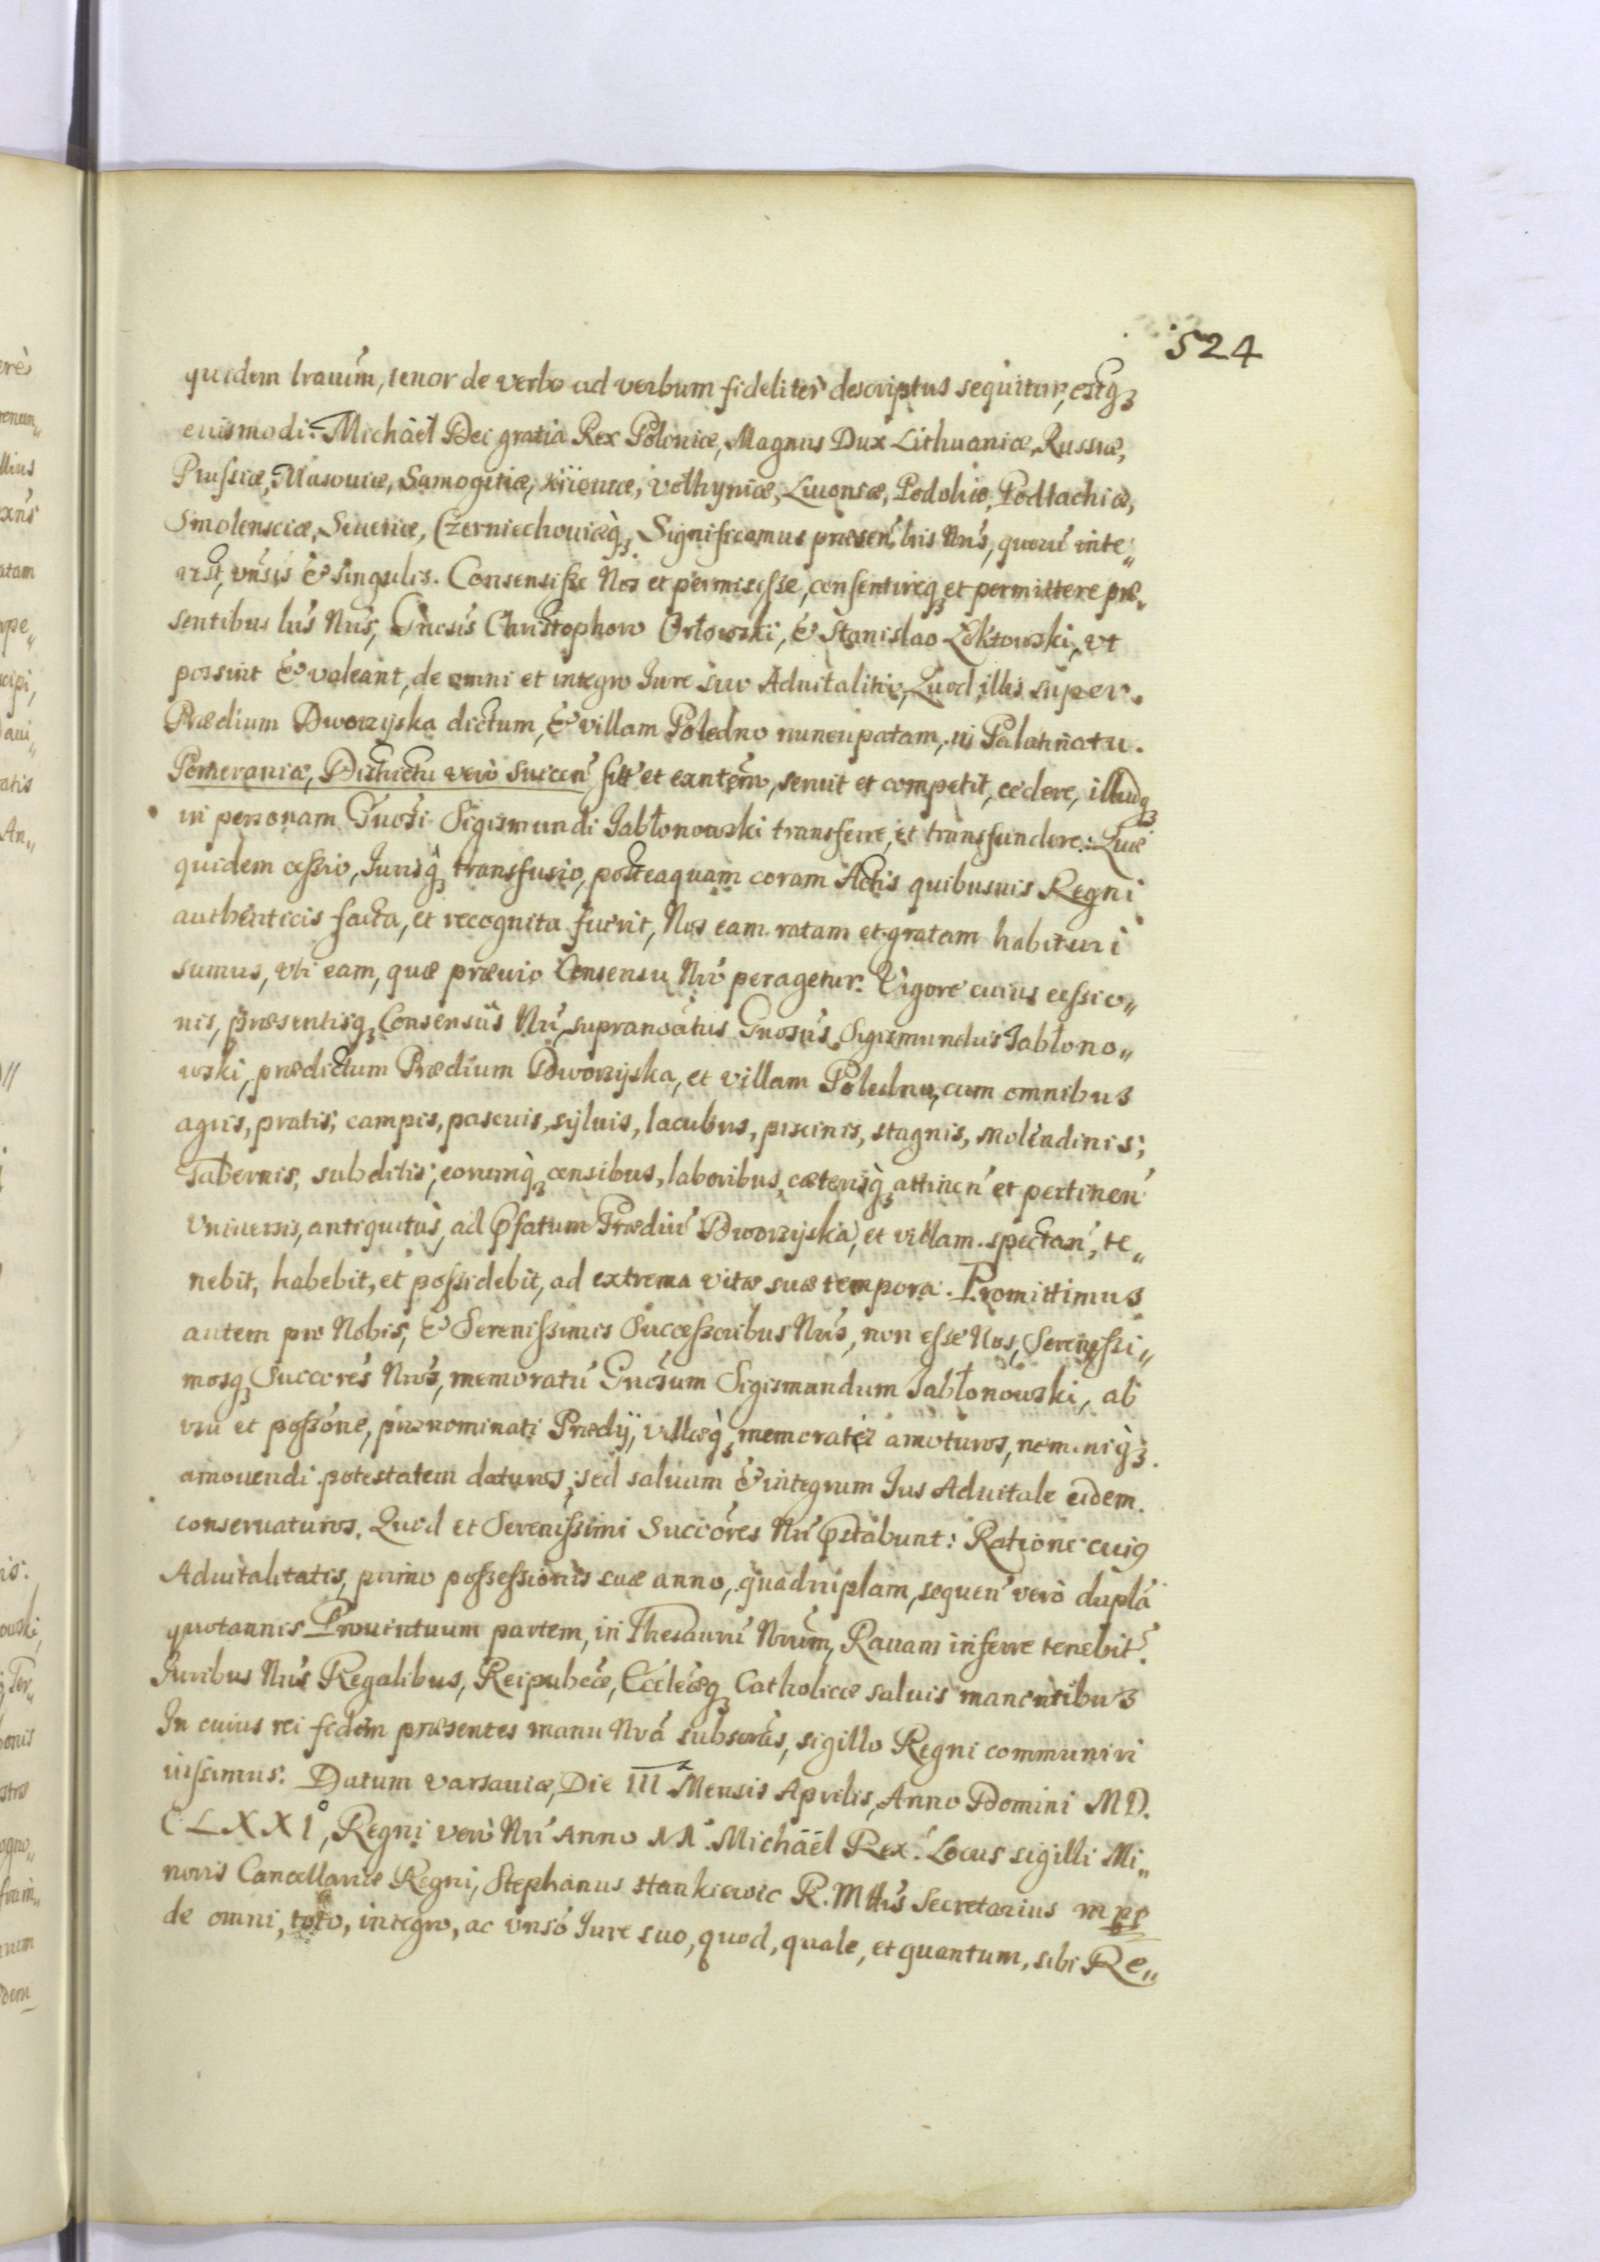 524
quidem lrarum, tenor de verbo ad verbum fideliter descriptus sequitur, estq3
euismodi. Michäel Dei gratia Rex Poloniæ, Magnus Dux Lithuaniæ, Russiæ,
Prussiæ, Masouiæ, Samogitiæ, Kiiouiæ, Volhyniæ, Liuoniæ, Podoliæ, Podlachiæ,
Smolensciæ, Seueriæ, Czerniechouiæq3. Significamus præsen̄ lris Nris, quorū inte„
rest, vnsis & singulis. Consensisse Nos et permisisse, consentireq3 et permittere præ„
sentibus lris Nris, Gnosis Christophoro Orłowski, & Stanislao Łoktowski, vt
possint & valeant, de omni et integro Iure suo Aduitalitio, Quod illis super
Prædium Dworzyska dictum, & villam Poledno nuncupatam, in Palatinatu
Pomeraniæ, Districtu verò Suecen̄ sitt et exntem, seruit et competit, cedere, illudq3
in personam Gnosi Sigismundi Jabłonowski transferre, et transfundere. Quæ
quidem cessio, Iurisq3 transfusio, posteaquam coram Actis quibusuis Regni
authenticis facta, et recognita fuerit, Nos eam ratam et gratam habituri
sumus, vti eam, quæ præuio Consensu Nro peragetur. Vigore cuius cessio„
nis, præsentisq3 Consensüs Nri, supranoatus Gnosus Sigismundus Jabłono„
wski, prædictum Prædium Dworzyska, et villam Poledno, cum omnibus
agris, pratis, campis, pascuis, syluis, lacubus, piscinis, stagnis, molendinis,
Tabernis, subditis, eorumq3 censibus, laboribus, cæterisq3 attinen̄ et pertinen̄
Vniuersis, antiquitùs, ad Pfatum Prædiū Dworzyska, et villam spectan̄, te„
nebit, habebit, et possidebit, ad extrema vitæ suæ tempora. Promittimus
autem pro Nobis, & Serenissimis Successoribus Nris, non esse Nos, Serenissi„
mosq3 Succores Nros, memoratū Gnosum Sigismundum Jabłonowski, ab
vsu et possone, prænominati Prædÿ, villæq3 memoratæ amoturos, neminiq3
amouendi potestatem daturos, sed saluum & integrum Ius Aduitale eidem
conseruaturos. Quod et Serenissimi Succores Nri Pstabunt: Ratione cuius
Aduitalitatis, primo possessionis suæ anno, quadruplam, sequen̄ verò duplā
quotannis Prouentuum partem, in Thesaurū Nrum, Rauam inferre tenebit.
Iuribus Nris Regalibus, Reipubcæ, Eccleæq3 Catholicæ saluis manentibus
In cuius rei fidem præsentes manu Nrā subscras, sigillo Regni communiri
iussimus. Datum Varsauiæ, Die III Mensis Aprilis, Anno Domini MD.
CLXXI°, Regni verò Nri Anno II. Michäel Rex. Locus sigilli Mi„
noris Cancellariæ Regni, Stephanus Stankiewic R. Mttis Secretarius mpp
de omni, toto, integro, ac vnso Iure suo, quod, quale, et quantum, sibi Re„